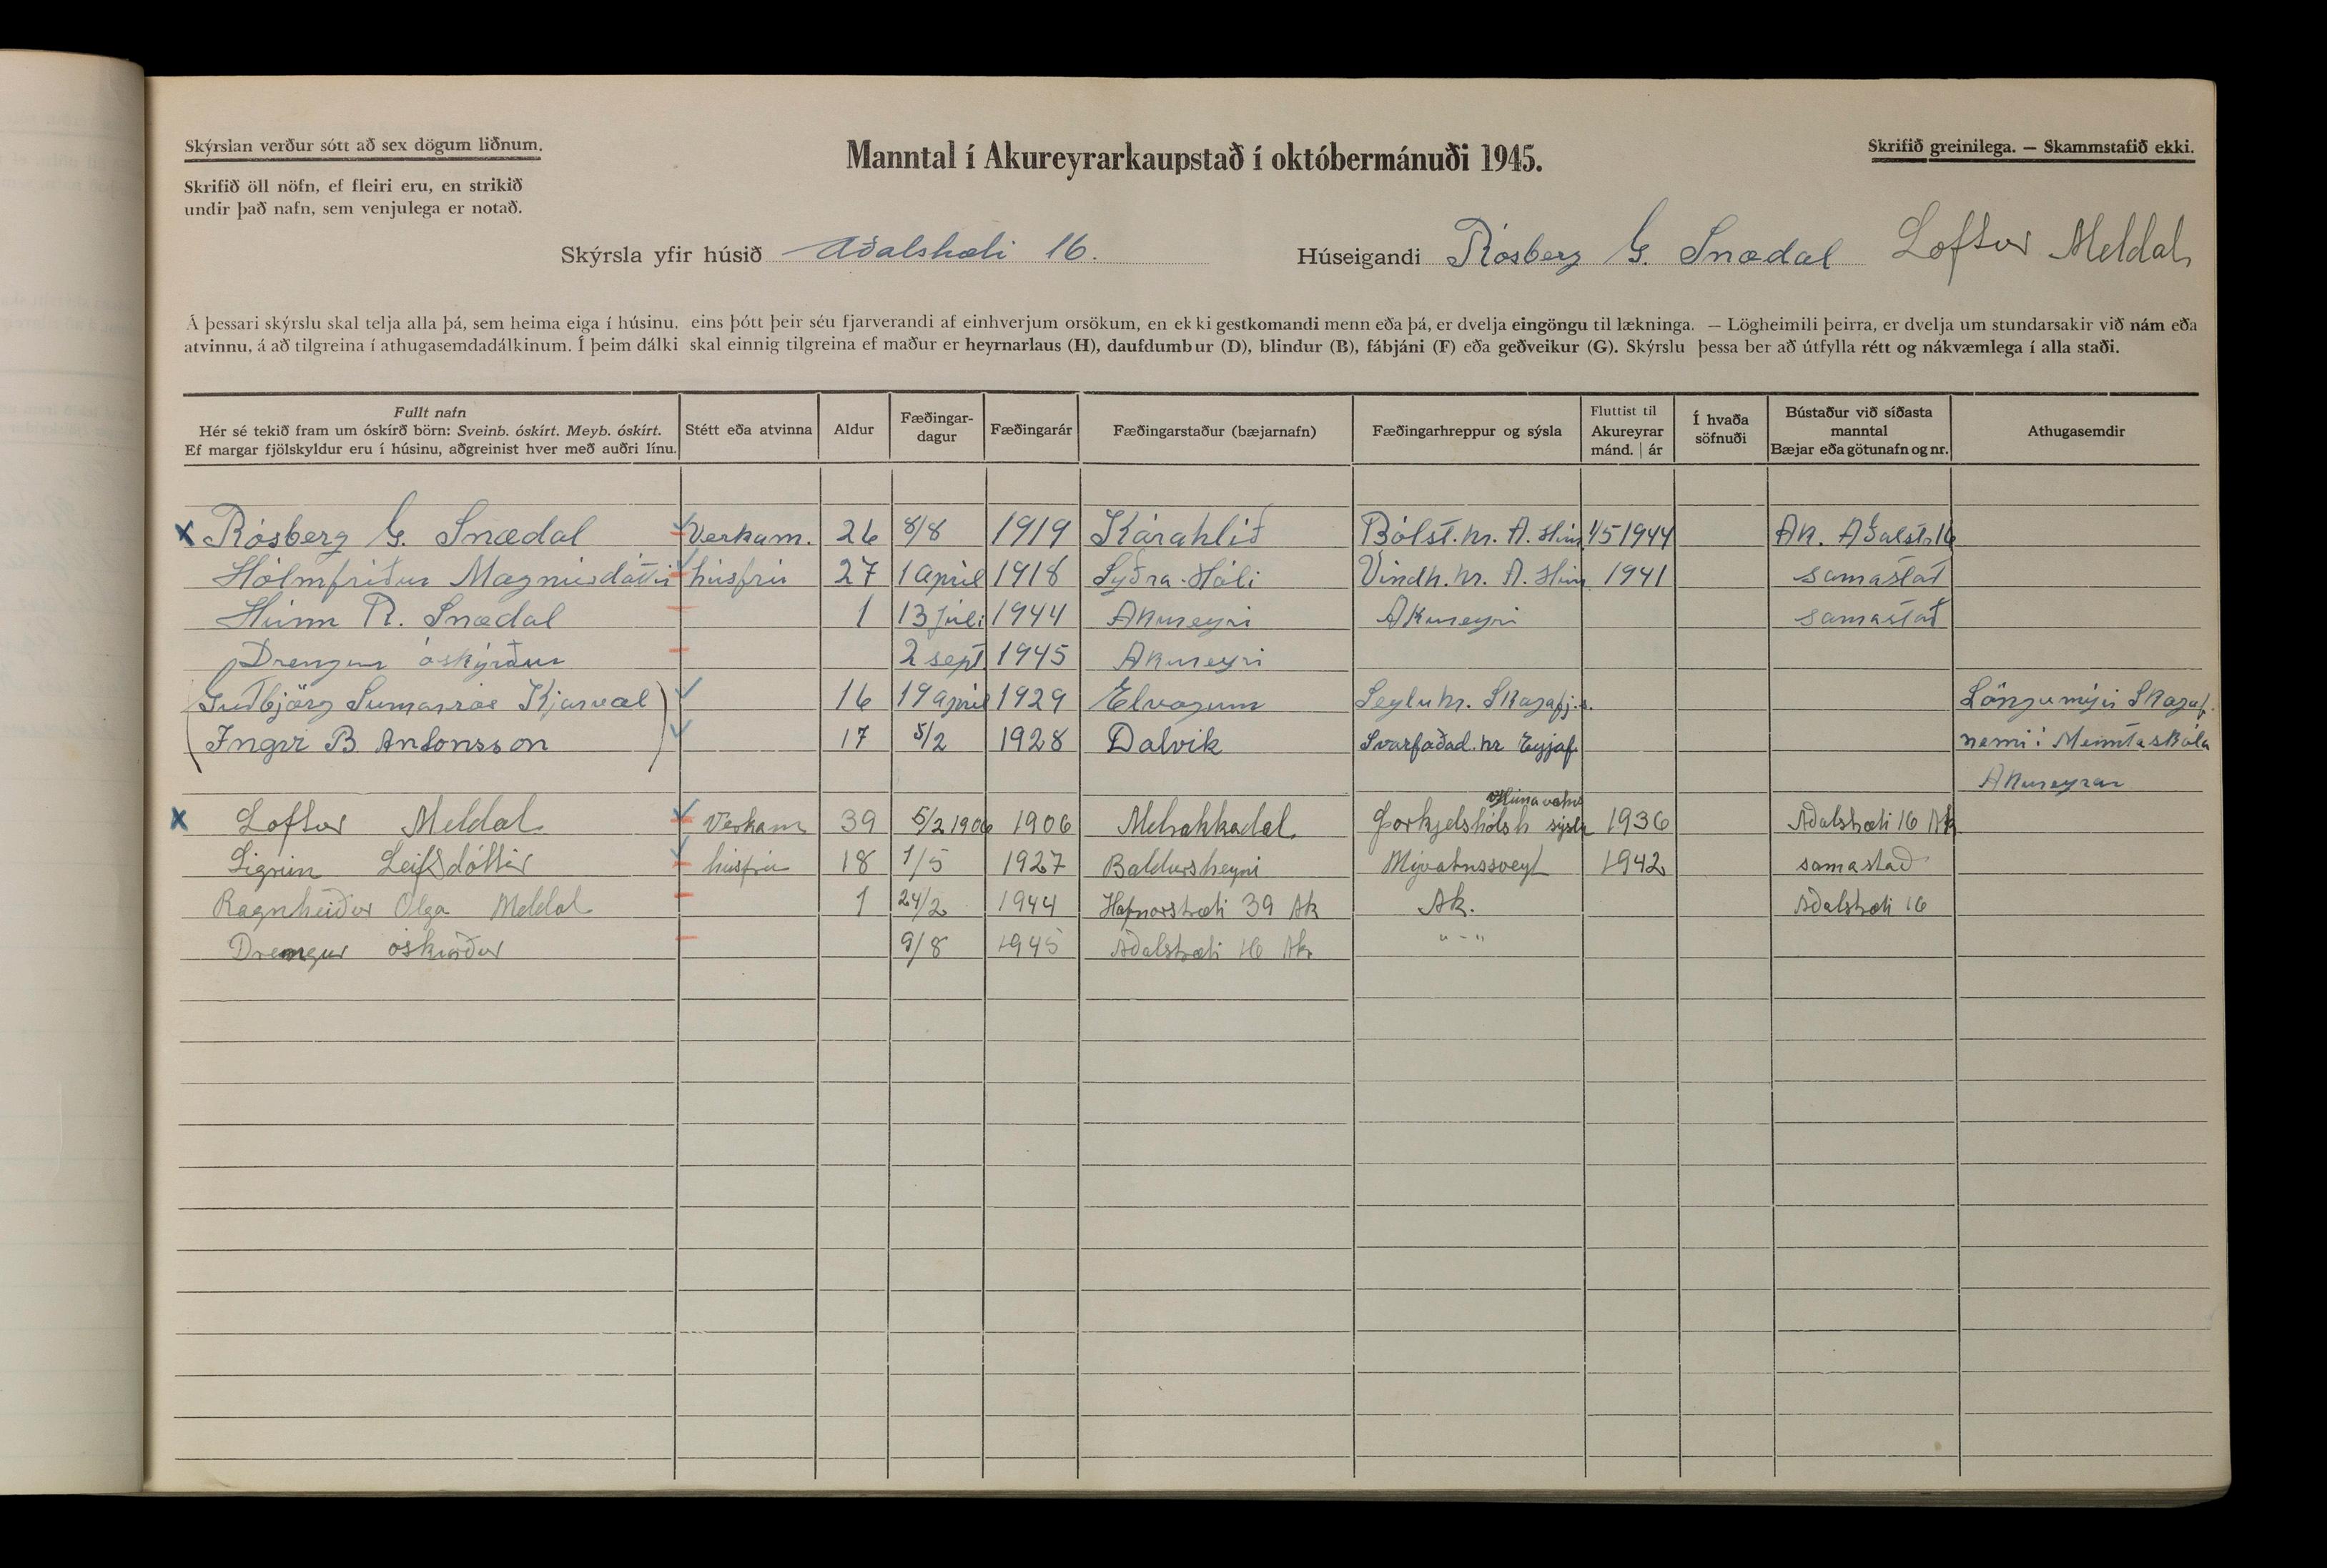 Skýrslan verður sótt að sex dögum liðnum.
Manntal í Akureyrarkaupstað í októbermánuði 1945.
Skrifið greinilega. — Skammstafið ekki.
Skrifið öll nöfn, ef fleiri eru, en strikið
undir það nafn, sem venjulega er notað.
Skýrsla yfir húsið Aðalstræti 16. Húseigandi Rósberg G. Snædal Loftur Meldal
Á þessari skýrslu skal telja alla þá, sem heima eiga í húsinu, eins þótt þeir séu fjarverandi af einhverjum orsökum, en ekki gestkomandi menn eða þá, er dvelja eingöngu til lækninga. — Lögheimili þeirra, er dvelja um stundarsakir við nám eða
atvinnu, á að tilgreina í athugasemdadálkinum. Í þeim dálki skal einnig tilgreina ef maður er heyrnarlaus (H), daufdumbur (D), blindur (B), fábjáni (F) eða geðveikur (G). Skýrslu þessa ber að útfylla rétt og nákvæmlega í alla staði.
Fullt nafn
Hér sé tekið fram um óskírð börn: Sveinb. óskírt. Meyb. óskírt.
Ef margar fjölskyldur eru í húsinu, aðgreinist hver með auðri línu.
Stétt eða atvinna
Aldur
Fæðingar-
dagur
Fæðingarár
Fæðingarstaður (bæjarnafn)
Fæðingarhreppur og sýsla
Fluttist til
Akureyrar
mánd. | ár
Í hvaða
söfnuði
Bústaður við síðasta
manntal
Bæjar eða götunafn og nr.
Athugasemdir
x Rósberg G. Snædal Verkam. 26 8/8 1919 Kárahlíð Bólst.hr. A. Hún 1/5 1944 Ak. Aðalst. 16
Hólmfríður Magnúsdóttir húsfrú 27 1 apríl 1918 Syðra-Hóli Vindh. hr. A. Hún 1941 samastað
Húnn R. Snædal 1 13 júlí 1944 Akureyri Akureyri samastað
Drengur óskýrður 2 sept 1945 Akureyri
(Guðbjörg Sumarrós Kjarval) 16 19 apríl 1929 Elvogum Seyluhr. Skagafj.s. Löngumýri Skagaf.
(Ingvi B Antonsson) 17 5/2 1928 Dalvik Svarfaðad.hr Eyjaf. nemi í Menntaskóla
Akureyrar
x Loftur Meldal Verkam 39 5/2 1906 1906 Melrakkadal Þorkjelshólsh Húnavatns sýsla 1936 Aðalstræti 16 Ak
Sigrún Leifsdóttir húsfrú 18 1/5 1927 Baldursheymi Mývatnssveyt 1942 samastað
Ragnheiður Olga Meldal 1 24/2 1944 Hafnarstræti 39 Ak Ak. Aðalstræti 16
Drengur óskírður 9/8 1945 Aðalstræti 16 Ak " - "